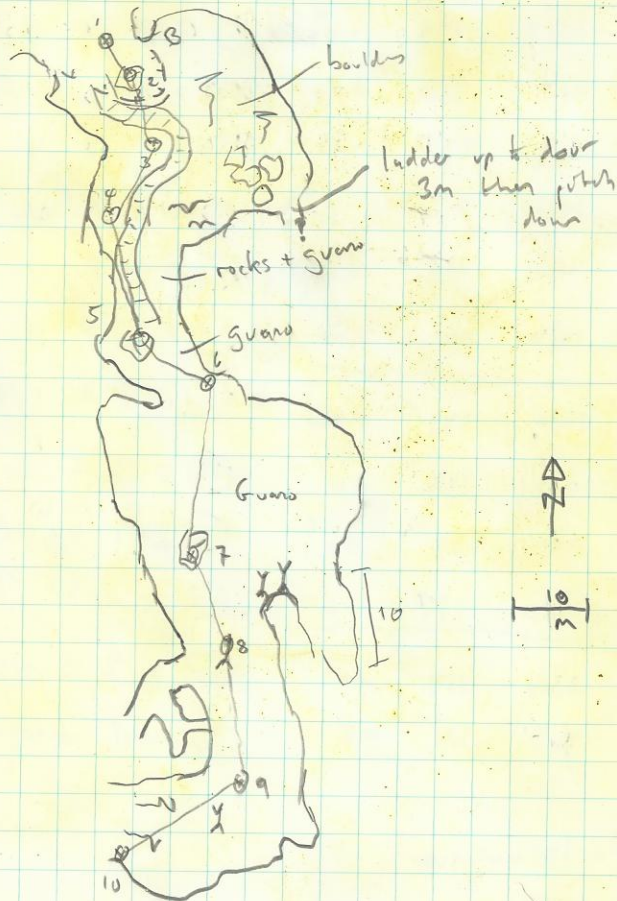 1
B
2
boulders
3
ladder up to door
3m then pitch
down
4
rocks + guano
5
guano
6
Guano
N
7
10
10
m
8
9
10